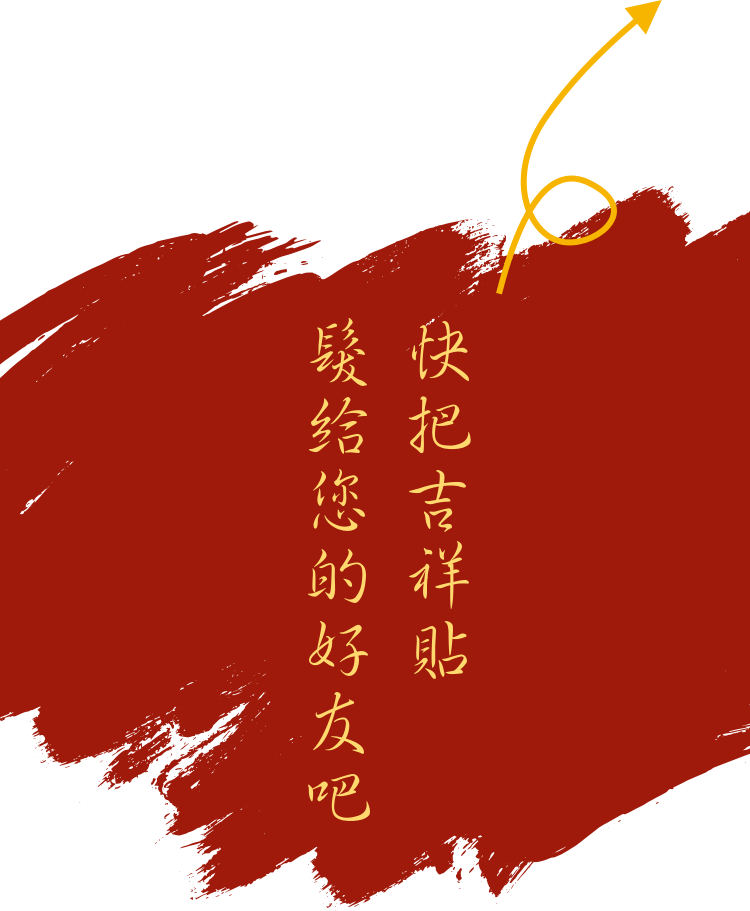 快把吉祥貼
髮给您的好友吧